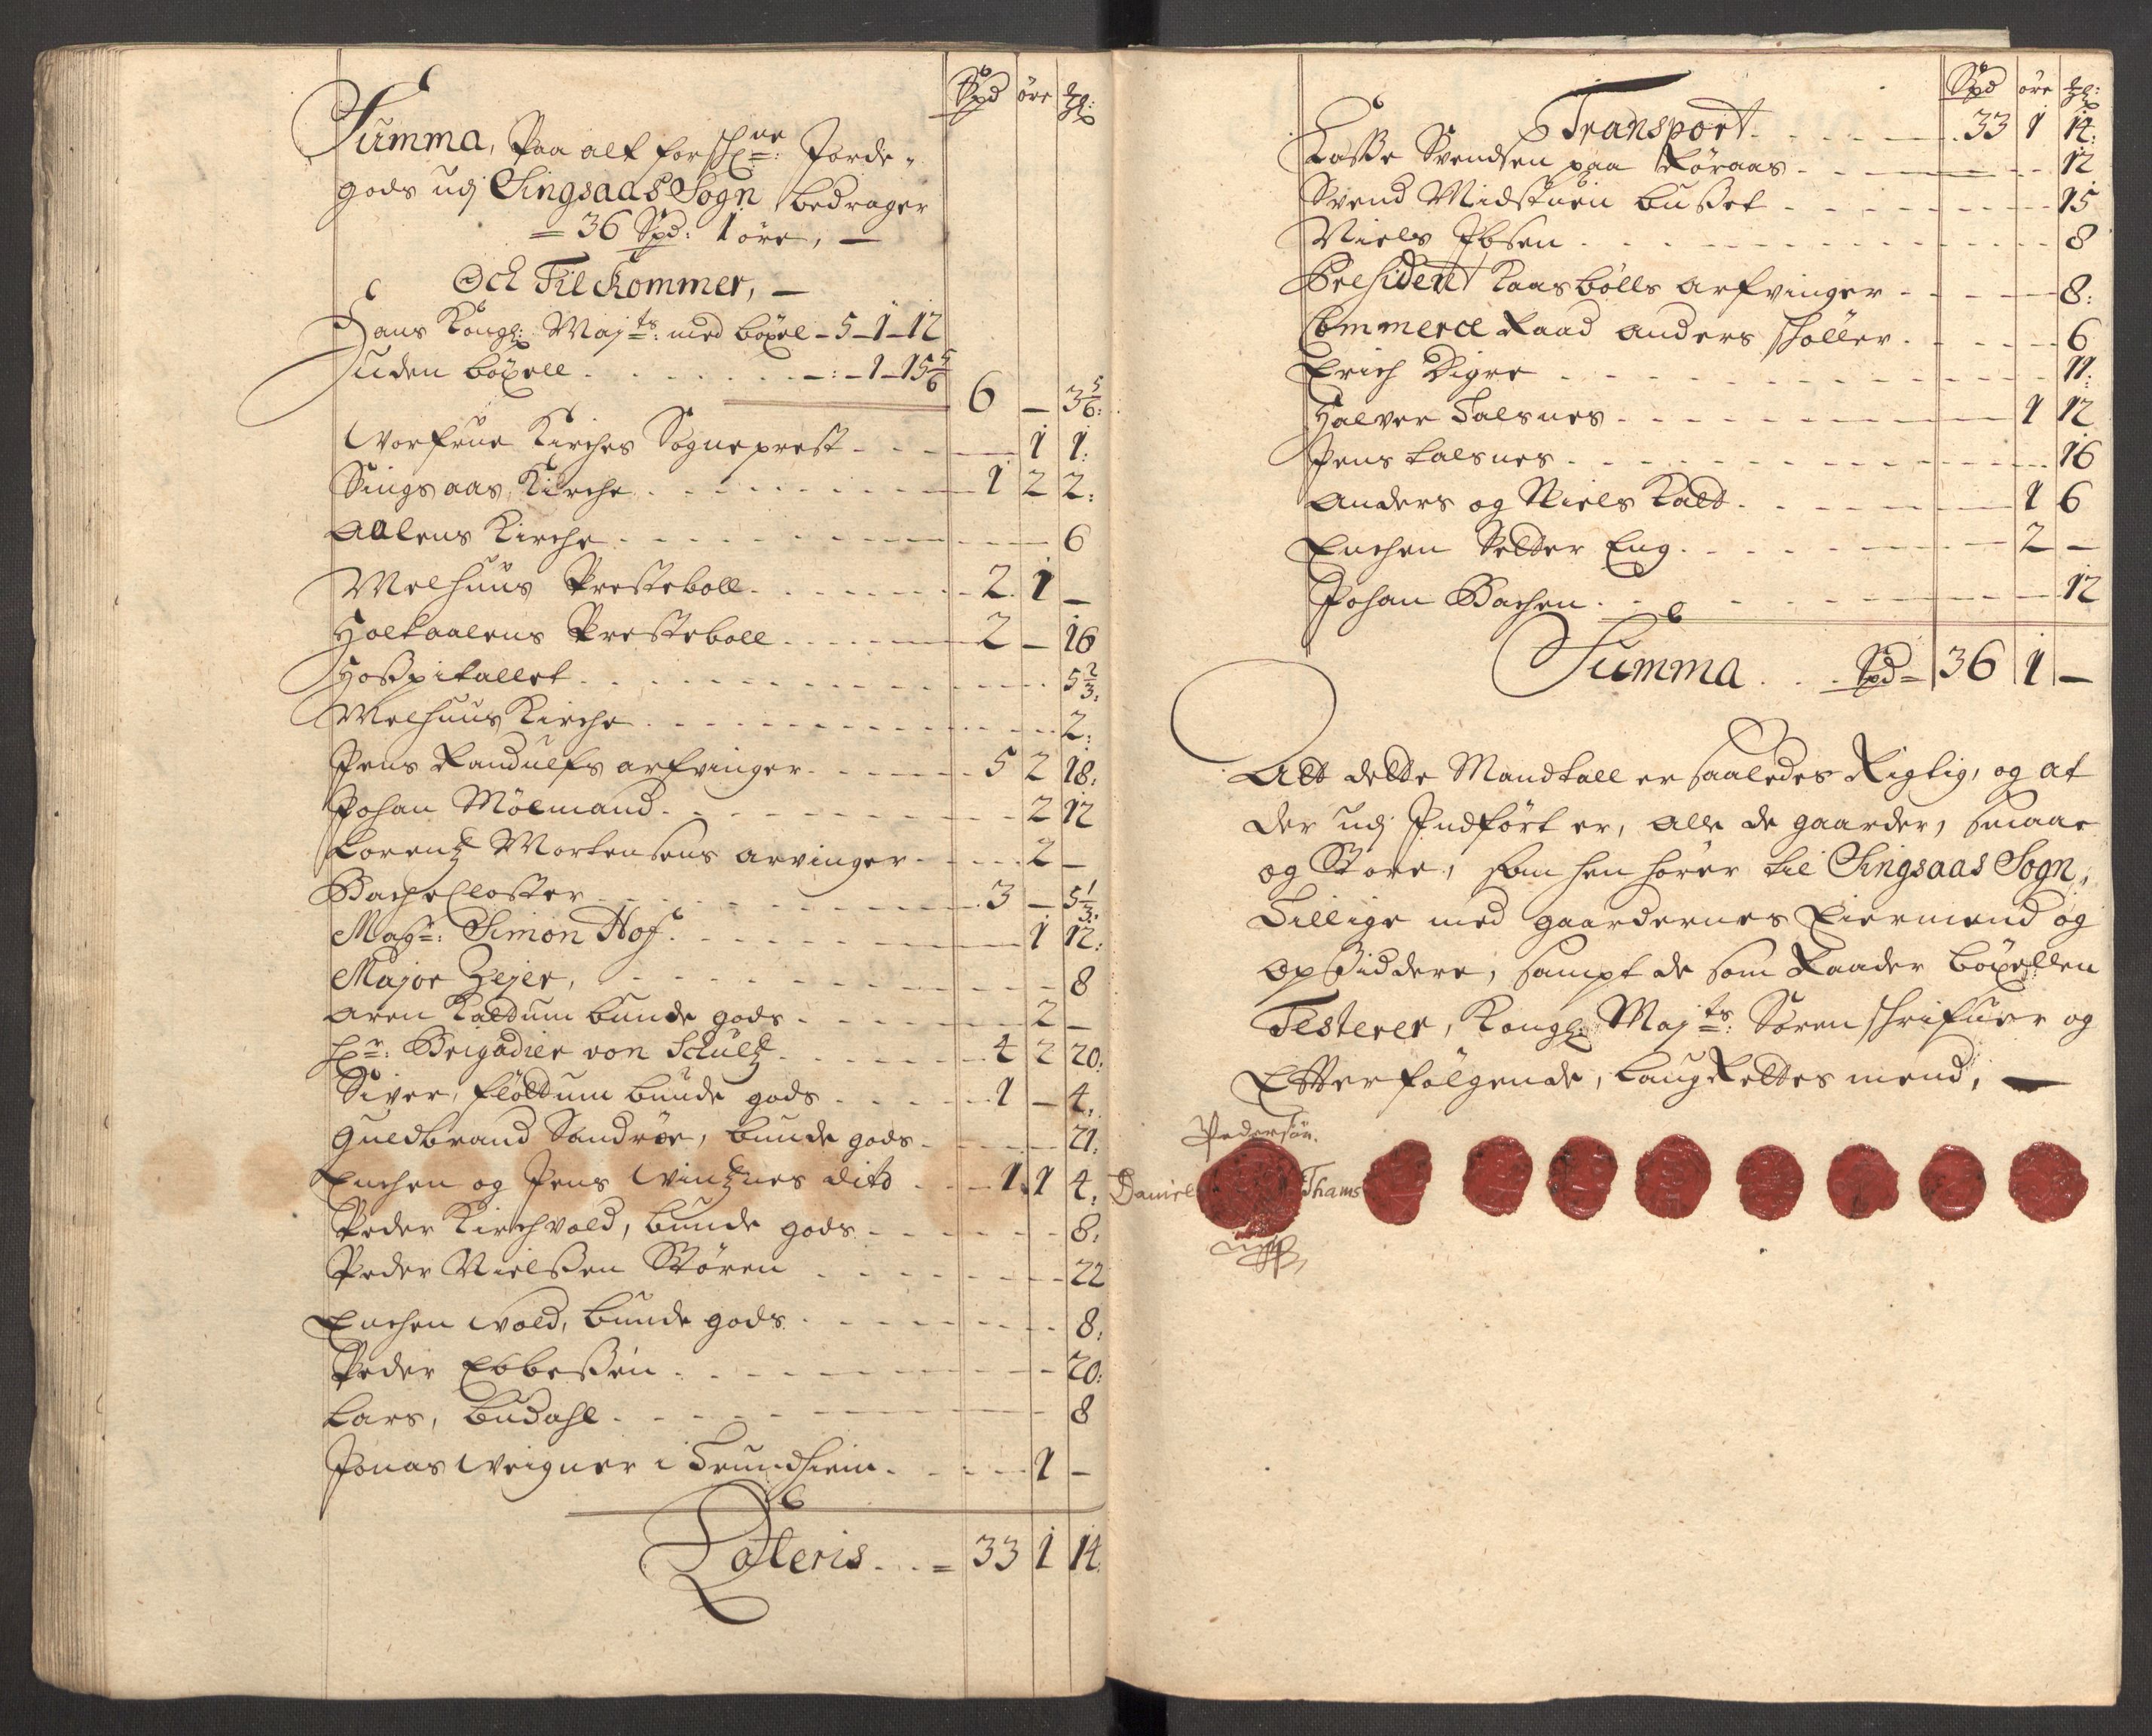 Spd öre ℔:
Summa, Paa alt forschne: Jorde-
gods udj Singsaas Sogn bedrager
= 36 Spd: 1 öre, —
Och Tilkommer, —
Hans Kongl: Majts: med böxel - 5 - 1 - 12
uden böxell . . . - : - 1 - 15 5/6
6 — 3 5/6:
Vorfrue Kirches Sogneprest . . . 1 1:
Singsaas Kirche . . . 1 2 2:
Aalens Kirche . . . 6
Melhuus Presteboll . . . 2. 1 —
Holtaalens Presteboll . . . 2 — 16
Hospitallet . . . 5 2/3:
Melhuus Kirche . . . 2:
Jens Randulfs arfvinger . . . 5 2 18:
Johan Mölmand . . . 2 12
Lorentz Mortensens arvinger . . . 2 —
Bache Closter . . . 3 — 5 1/3:
Magr: Simon Hof . . . 1 12:
Major Zejer, . . . 8
Aren Kaldum bunde gods . . . 2 —
Hr: Brigadier von Schultz . . . 4 2 20:
Siver, Flöttum bunde gods . . . 1 — 4,
Guldbrand Sandröe, bunde gods . . . 21:
Enchen og Jens Vintznes dito . . . 1. 1 4,
Peder Kirchvold, bunde gods . . . 8,
Peder Nielßen Stören . . . 22
Enchen Vold, bunde gods . . . 8,
Peder Ebbeßen . . . 20:
Lars, Budahl . . . 8
Jonas Weigner i Trundhiem . . . 1 —
Lateris . . = 33 1 14.
Spd öre ℔:
Transport . . . 33 1 14:
Laße Svendsen paa Röraas . . . 12
Svend Midstuen bußet . . . 15
Niels Ibsen . . . 8
President Kaasbölls arfvinger . . . 8:
Commerce Raad Anders Schöller . . . 6
Erich Digre . . . 11:
Halver Talsnes . . . 1 12
Jens Talsnes . . . 16
Anders og Niels Kald . . . 1 6
Enchen Setter Eng . . . 2 —
Johan Bachen . . . 12
Summa . . Spd = 36 1 —
Att dette Mandtall er saaledes Rigtig, og at
der udj Indfört er, alle de gaarder, smaae
og Store, som hen hörer til Singsaas Sogn,
Tillige med gaardernes Eiermend og
Opsiddere, sampt de som Raader böxellen
Testerer, Kongl: Majts: Sorenschrifuer og
Efterfölgende, Laug Rettes mend, —
Pedersön.
Daniel Thams